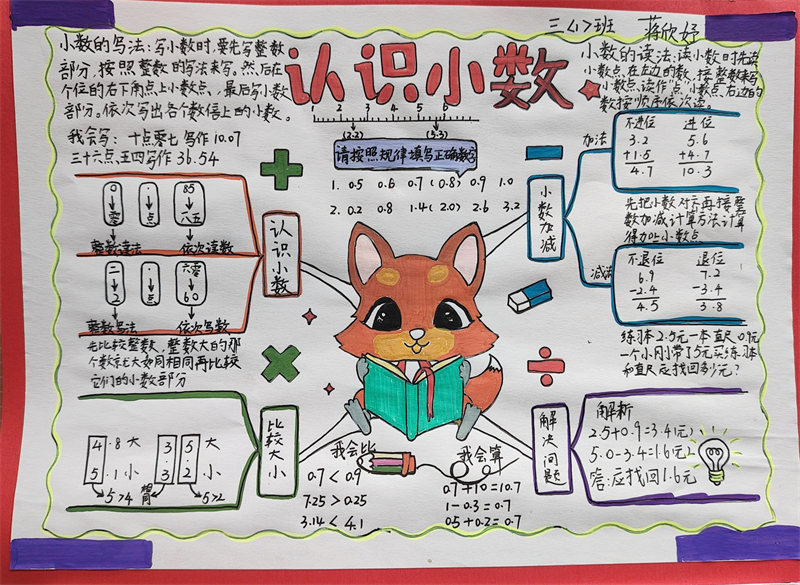 三〈1〉班 蒋欣妤
认识小数
小数的写法：写小数时，要先写整数
部分，按照整数的写法来写。然后在
个位的右下角点上小数点，最后写小数
部分。依次写出各个数位上的小数。
我会写：十点零七 写作 10.07
三十六点五四写作 36.54
0 · 85
零 点 八五
整数读法 依次读数
二 · 六零
2 点 60
整数写法 依次写数
认识小数
先比较整数，整数大的那
个数就大如周相同再比较
它们的小数部分
4.8 大
5.1 小
5>4
相同
3 5 大
3 2 小
5>2
比较大小
1 2 3 4 5 6
(2.2) (5.3)
请按照规律填写正确数字
1. 0.5 0.6 0.7 (0.8) 0.9 1.0
2. 0.2 0.8 1.4 (2.0) 2.6 3.2
我会比
0.7 < 0.9
7.25 > 0.25
3.14 < 4.1
我会算
0.7+10=10.7
1-0.3=0.7
0.5+0.2=0.7
小数的读法：读小数时先读
小数点，在左边的数，接整数来写
小数点，读作"点"小数点，右边的
数按顺序依次读。
小数加减
加法
不进位 进位
3.2 5.6
+1.5 +4.7
4.7 10.3
先把小数对齐再接整
数加减计算方法计算
得加上小数点
减法
不退位 退位
6.9 7.2
-2.4 -3.4
4.5 3.8
练习本2.5元一本直尺0.9元
一个小刚带了5元买练习本
和直尺应找回多少元？
解决问题
解析
2.5+0.9=3.4(元)
5.0-3.4=1.6(元)
答：应找回1.6元